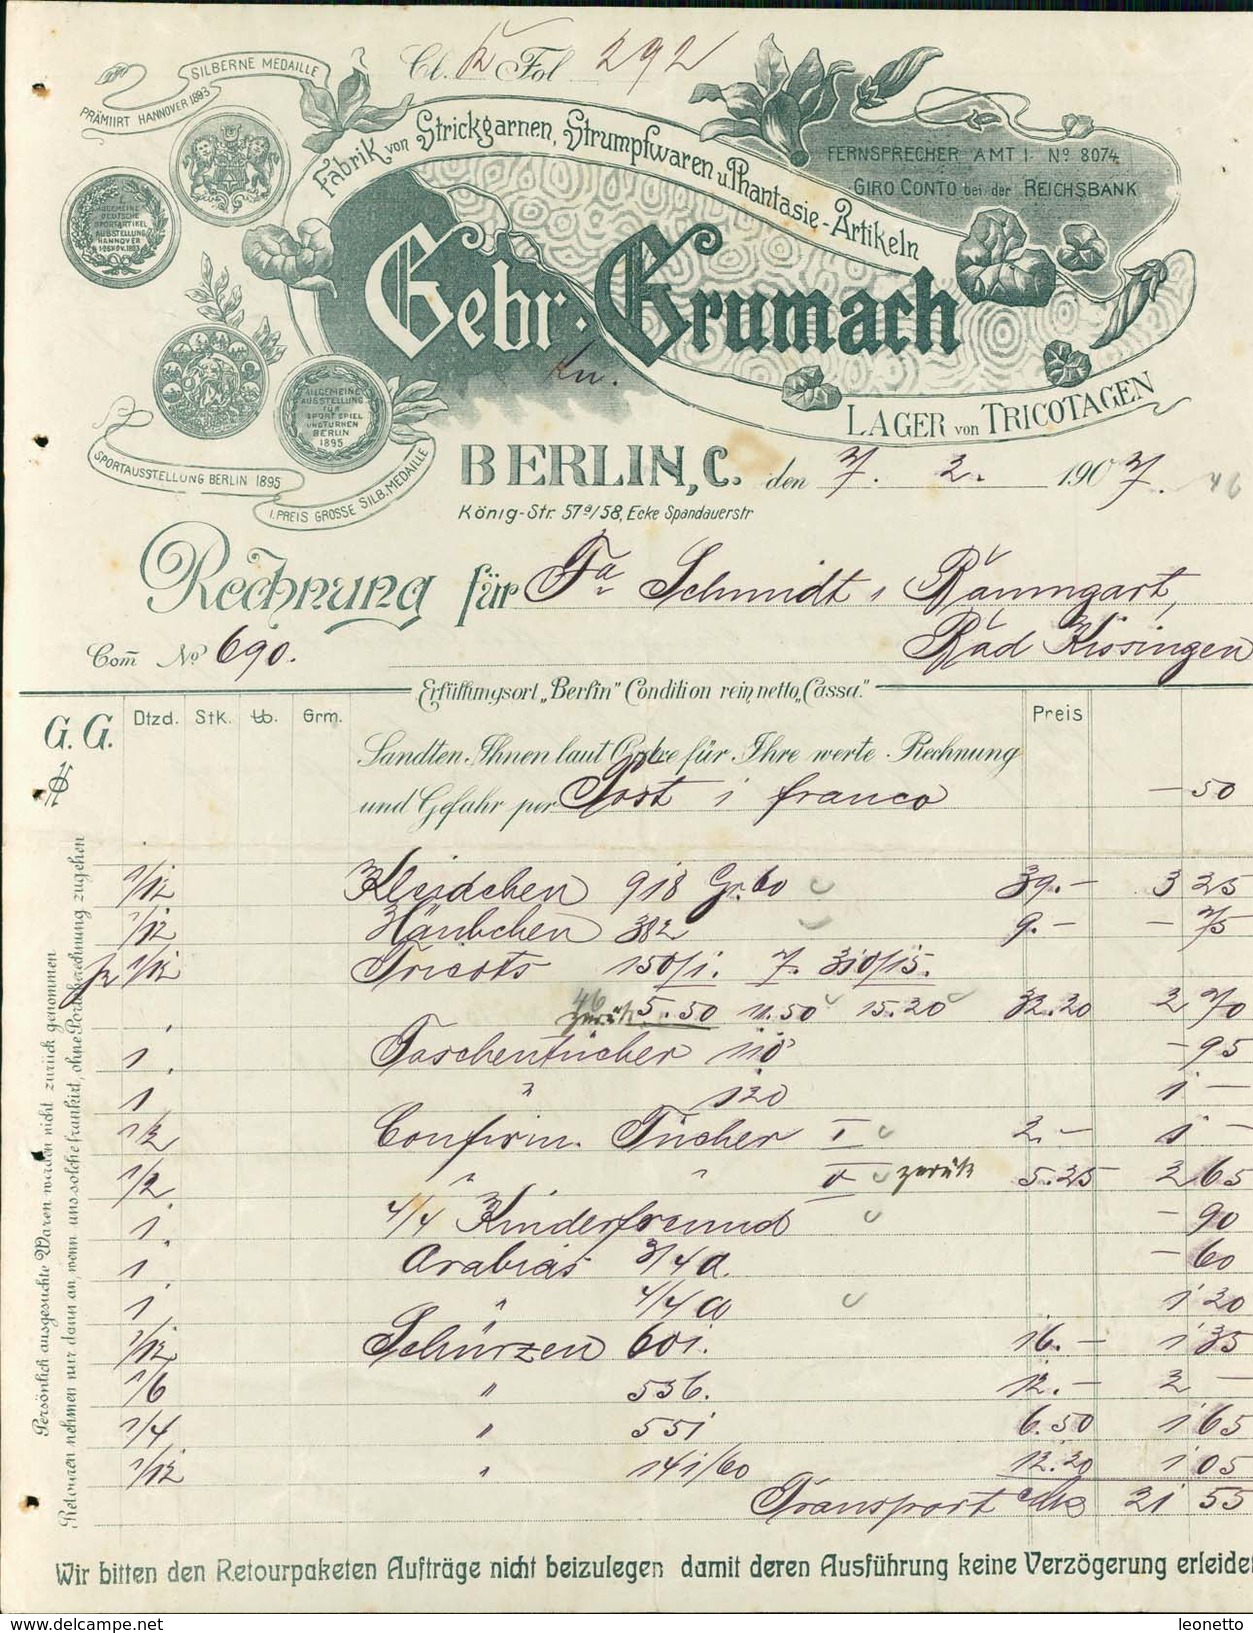 Cl. K Fol 292
SILBERNE MEDAILLE
PRÄMIIRT HANNOVER 1893
Fabrik von Strickgarnen, Strumpfwaren u. Phantasie-Artikeln
FERNSPRECHER AMT I. No 8074
GIRO CONTO bei der REICHSBANK
I. ALLGEMEINE DEUTSCHE SPORTARTIKEL AUSSTELLUNG HANNOVER
Gebr. Grumach
ALLGEMEINE AUSSTELLUNG FÜR SPORT SPIEL UND TURNEN BERLIN 1895
LAGER von TRICOTAGEN
SPORTAUSSTELLUNG BERLIN 1895
I. PREIS GROSSE SILB. MEDAILLE
BERLIN, C. den 7. 2. 1907.
46
König-Str. 57a/58, Ecke Spandauerstr
Rechnung für Fa Schmidt & Baumgart,
Com No 690. Bad Kissingen
Erfüllungsort „Berlin" Condition rein netto „Cassa."
G. G. Dtzd. Stk. Grm. Preis
Sandten Ihnen laut Ordre für Ihre werte Rechnung
und Gefahr per Post franco — 50
1/12 Kleidchen 918 Gr. 60 39.— 3 25
1/12 Häubchen 382 9.— — 75
1/12 Tricots 150/1. 7. 310/15.
46 zurük 5.50 11.50 15.20 32.20 2 70
1. Taschentücher 110 — 95
1 " 120 1 —
1/2 Confirm. Tücher I 2.— 1 —
1/2 " " II zurük 5.25 2 65
1. 4/4 Kinderfreund — 90
1. Arabias 3/4 a. — 60
1 " 4/4 a 1 20
1/12 Schürzen 601. 16.— 1 35
1/6 " 536. 12.— 2 —
1/4 " 551 6.50 1 65
1/12 " 141/60 12.20 1 05
Transport Mk 21 55
Persönlich ausgesuchte Waren werden nicht zurück genommen
Retouren nehmen nur dann an, wenn uns solche frankirt, ohne Portoberechnung zugehen
Wir bitten den Retourpaketen Aufträge nicht beizulegen damit deren Ausführung keine Verzögerung erleide
www.delcampe.net
leonetto